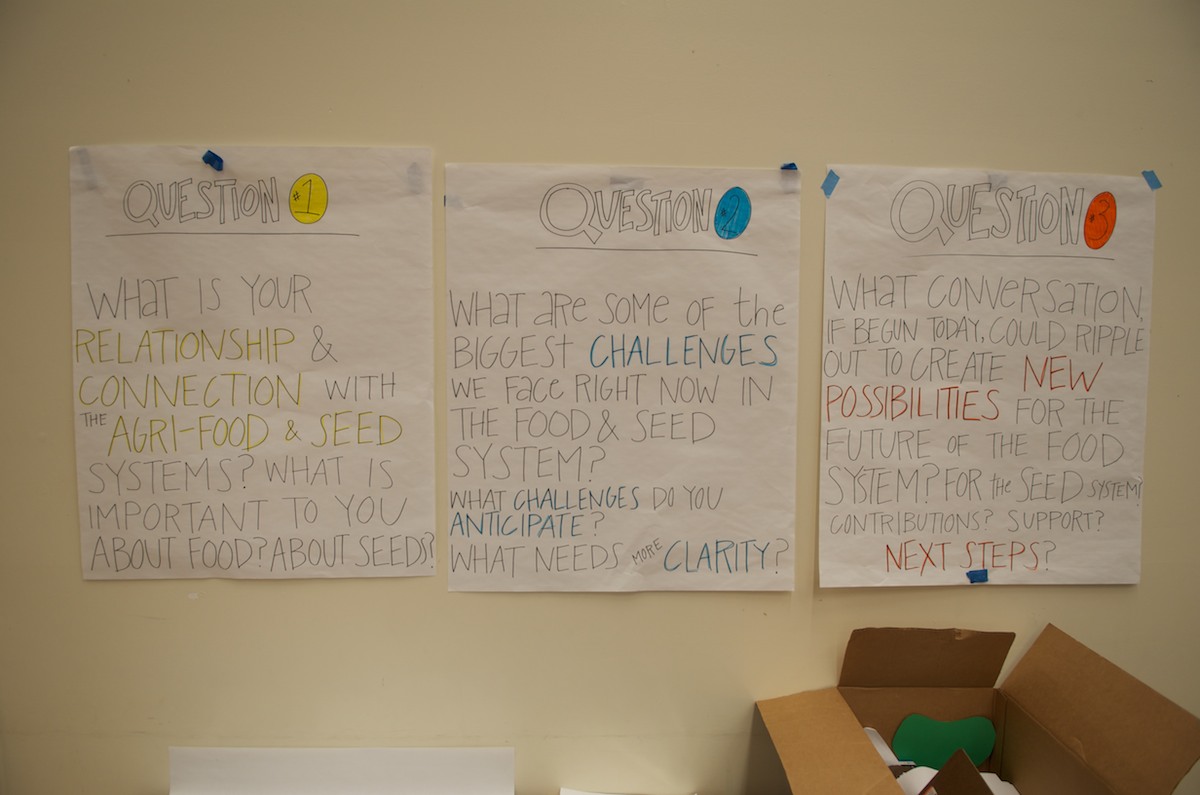 QUESTION #1
WHAT IS YOUR
RELATIONSHIP &
CONNECTION WITH
THE AGRI-FOOD & SEED
SYSTEMS? WHAT IS
IMPORTANT TO YOU
ABOUT FOOD? ABOUT SEEDS?
QUESTION #2
WHAT ARE SOME OF the
BIGGEST CHALLENGES
WE FACE RIGHT NOW IN
THE FOOD & SEED
SYSTEM?
WHAT CHALLENGES DO YOU
ANTICIPATE?
WHAT NEEDS MORE CLARITY?
QUESTION #3
WHAT CONVERSATION,
IF BEGUN TODAY, COULD RIPPLE
OUT TO CREATE NEW
POSSIBILITIES FOR THE
FUTURE OF THE FOOD
SYSTEM? FOR the SEED SYSTEM?
CONTRIBUTIONS? SUPPORT?
NEXT STEPS?